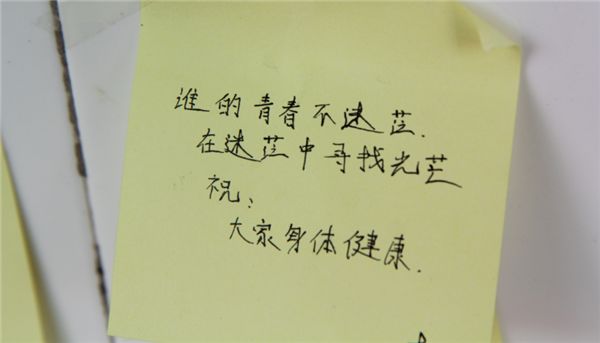 谁的青春不迷茫.
在迷茫中寻找光芒
祝:
大家身体健康.